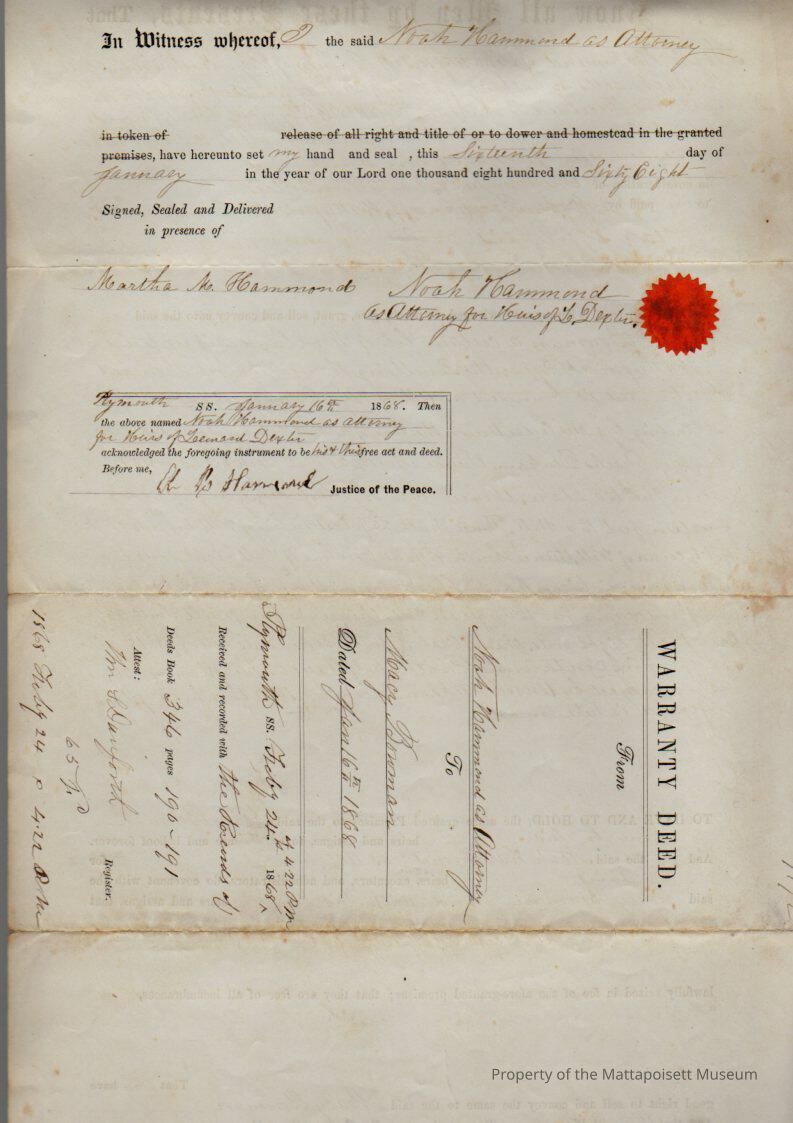 In Witness whereof, I the said Noah Hammond as Attorney
in token of release of all right and title of or to dower and homestead in the granted
premises, have hereunto set my hand and seal , this Sixteenth day of
January in the year of our Lord one thousand eight hundred and Sixty Eight
Signed, Sealed and Delivered
in presence of
Martha M. Hammond Noah Hammond
as Attorney for Heirs of L. Dexter.
Plymouth SS. January 16th 1868. Then
the above named Noah Hammond as attorney
for Heirs of Leonard Dexter
acknowledged the foregoing instrument to be his & their free act and deed.
Before me,
Hammond Justice of the Peace.
WARRANTY DEED.
From
Noah Hammond as Attorney
To
Macy Bowman
Dated Jan 16th 1868
Plymouth ss. Feby 24th at 4.22 P M 1868
Received and recorded with the Records of
Deeds Book 346 pages 190-191
Attest:
Wm S Danforth Register.
65
1868 Feby 24 4.22 P M
Property of the Mattapoisett Museum